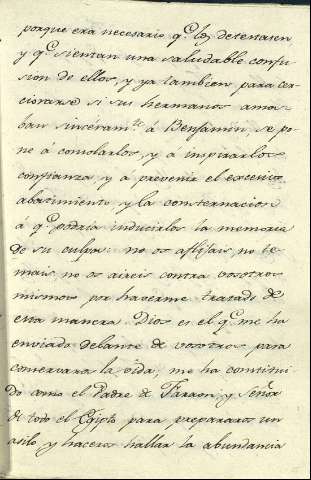 porque era necesario q.e los detestasen
y q.e sientan una saludable confu
sion de ellos, y ya tambien para cer
ciorarse si sus hermanos ama
ban sinceram.te á Benjamin, se po
ne á consolarlos, y á inspirarlos
confianza, y á prevenir el excesivo
abatimiento y la consternacion
á q.e podria inducirlos la memoria
de su culpa: no os aflijais, no te
mais, no os aireis contra vosotros
mismos por haverme tratado de
esta manera. Dios es el q.e me ha
enviado delante de vosotros para
conservara la vida; me ha constitui
do como el Padre de Faraon, y Señor
de todo el Egipto para prepararos un
asilo y haceros hallar la abundancia